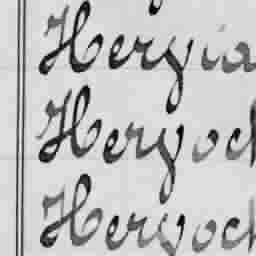 Heryia
Heryoch
Heryoch